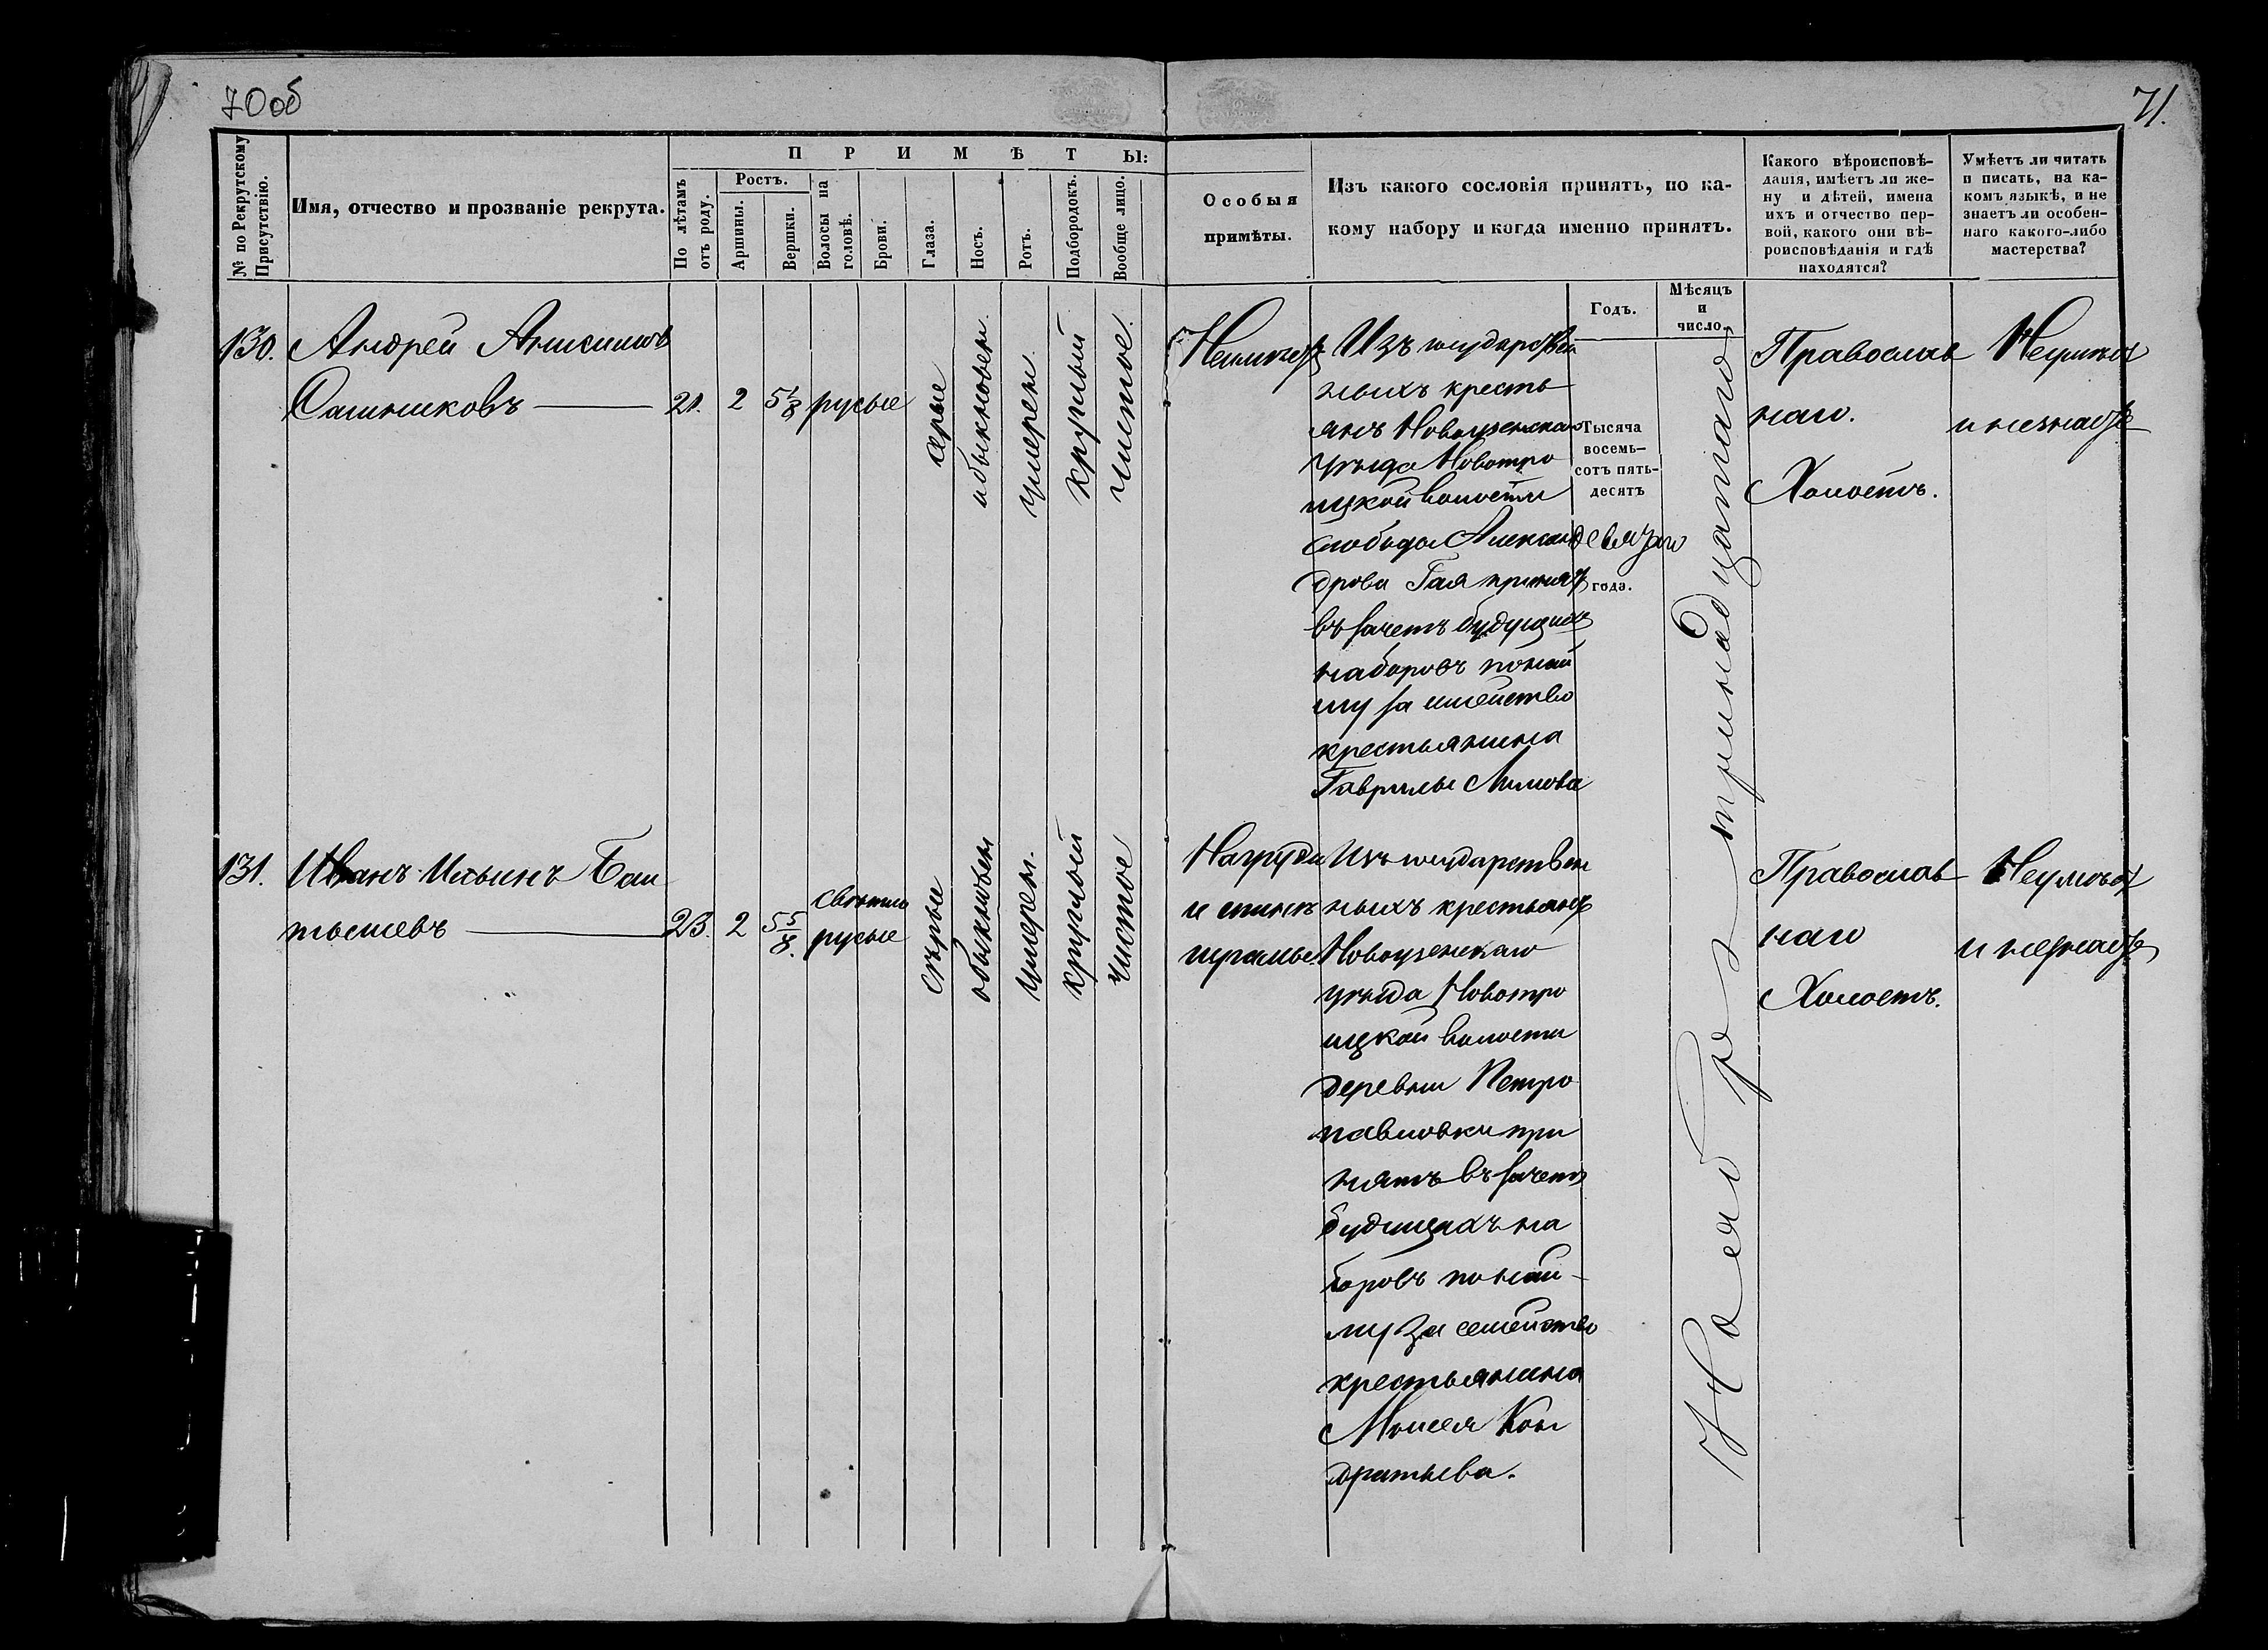 70об
71.
№ по Рекрутскому Присутствію.
Имя, отчество и прозваніе рекрута.
ПРИМѢТЫ:
По лѣтамъ отъ роду.
Ростъ.
Аршины.
Вершки.
Волосы на головѣ.
Брови.
Глаза.
Носъ.
Ротъ.
Подбородокъ.
Вообще лицо.
Особыя
примѣты.
Изъ какого сословія принятъ, по ка-
кому набору и когда именно принятъ.
Годъ.
Мѣсяцъ
и
число.
Какого вѣроисповѣ-
данія, имѣетъ ли же-
ну и дѣтей, имена
ихъ и отчество пер-
вой, какого они вѣ-
роисповѣданія и гдѣ
находятся?
Умѣетъ ли читать
и писать, на ка-
комъ языкѣ, и не
знаетъ ли особен-
наго какого-либо
мастерства?
130.
Андрей
Сашниковъ
21.
2
5 1/8
русые
серые
обыкновен.
умерен.
круглый
чистое.
Неимеетъ
Изъ государствен
ныхъ кресть
янъ Новоузенскаго
уѣзда Новотро
ицкой волости
слободы Алексан
дрова Гая принятъ
въ зачетъ будущихъ
наборовъ по най
му за семейство
крестьянина
Гаврилы
Тысяча
восемь-
сотъ пять-
десятъ
девятаго
года.
Ноября тринадцатаго
Православ
наго.
Холостъ.
Неумѣетъ
и незнаетъ
131.
Иванъ Ильинъ Бал
тышевъ
23.
2
5 5/8.
свѣтло
русые
сѣрые
обыкновен
умерен.
круглый
чистое
На груди
и спинѣ
шрамы.
Изъ государствен
ныхъ крестьянъ
Новоузенскаго
уѣзда Новотро
ицкой волости
деревни Петро
павловки при
нятъ въ зачетъ
будущихъ на
боровъ по най-
му за семейство
крестьянина
Моисея Кон
дратьева.
Православ
наго
Холостъ.
Неумѣетъ
и незнаетъ